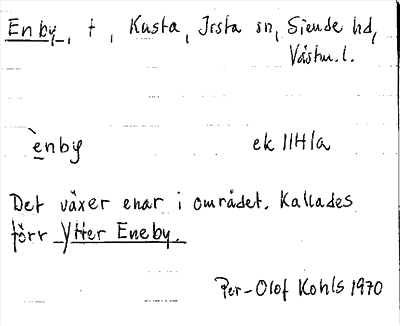 Enby, t, Kusta, Irsta sn, Siende hd,
Västm. l.
ènby ek IIH1a
Det växer enar i området. Kallades
förr Ytter Eneby.
Per-Olof Kohls 1970